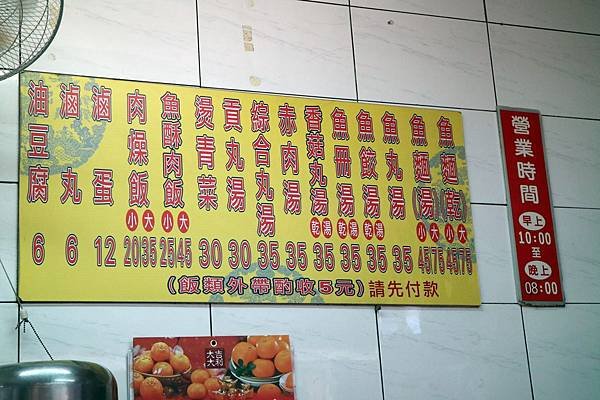 魚麵(乾) 小大 45/75
魚麵(湯) 小大 45/75
魚丸湯 35
魚餃湯 乾湯 35
魚冊湯 乾湯 35
香菇丸湯 乾湯 35
赤肉湯 35
綜合丸湯 35
貢丸湯 30
燙青菜 30
魚酥肉飯 小大 25/45
肉燥飯 小大 20/35
滷蛋 12
滷丸 6
油豆腐 6
(飯類外帶酌收5元)請先付款
營業時間
早上
10:00
至
晚上
08:00
大吉大利